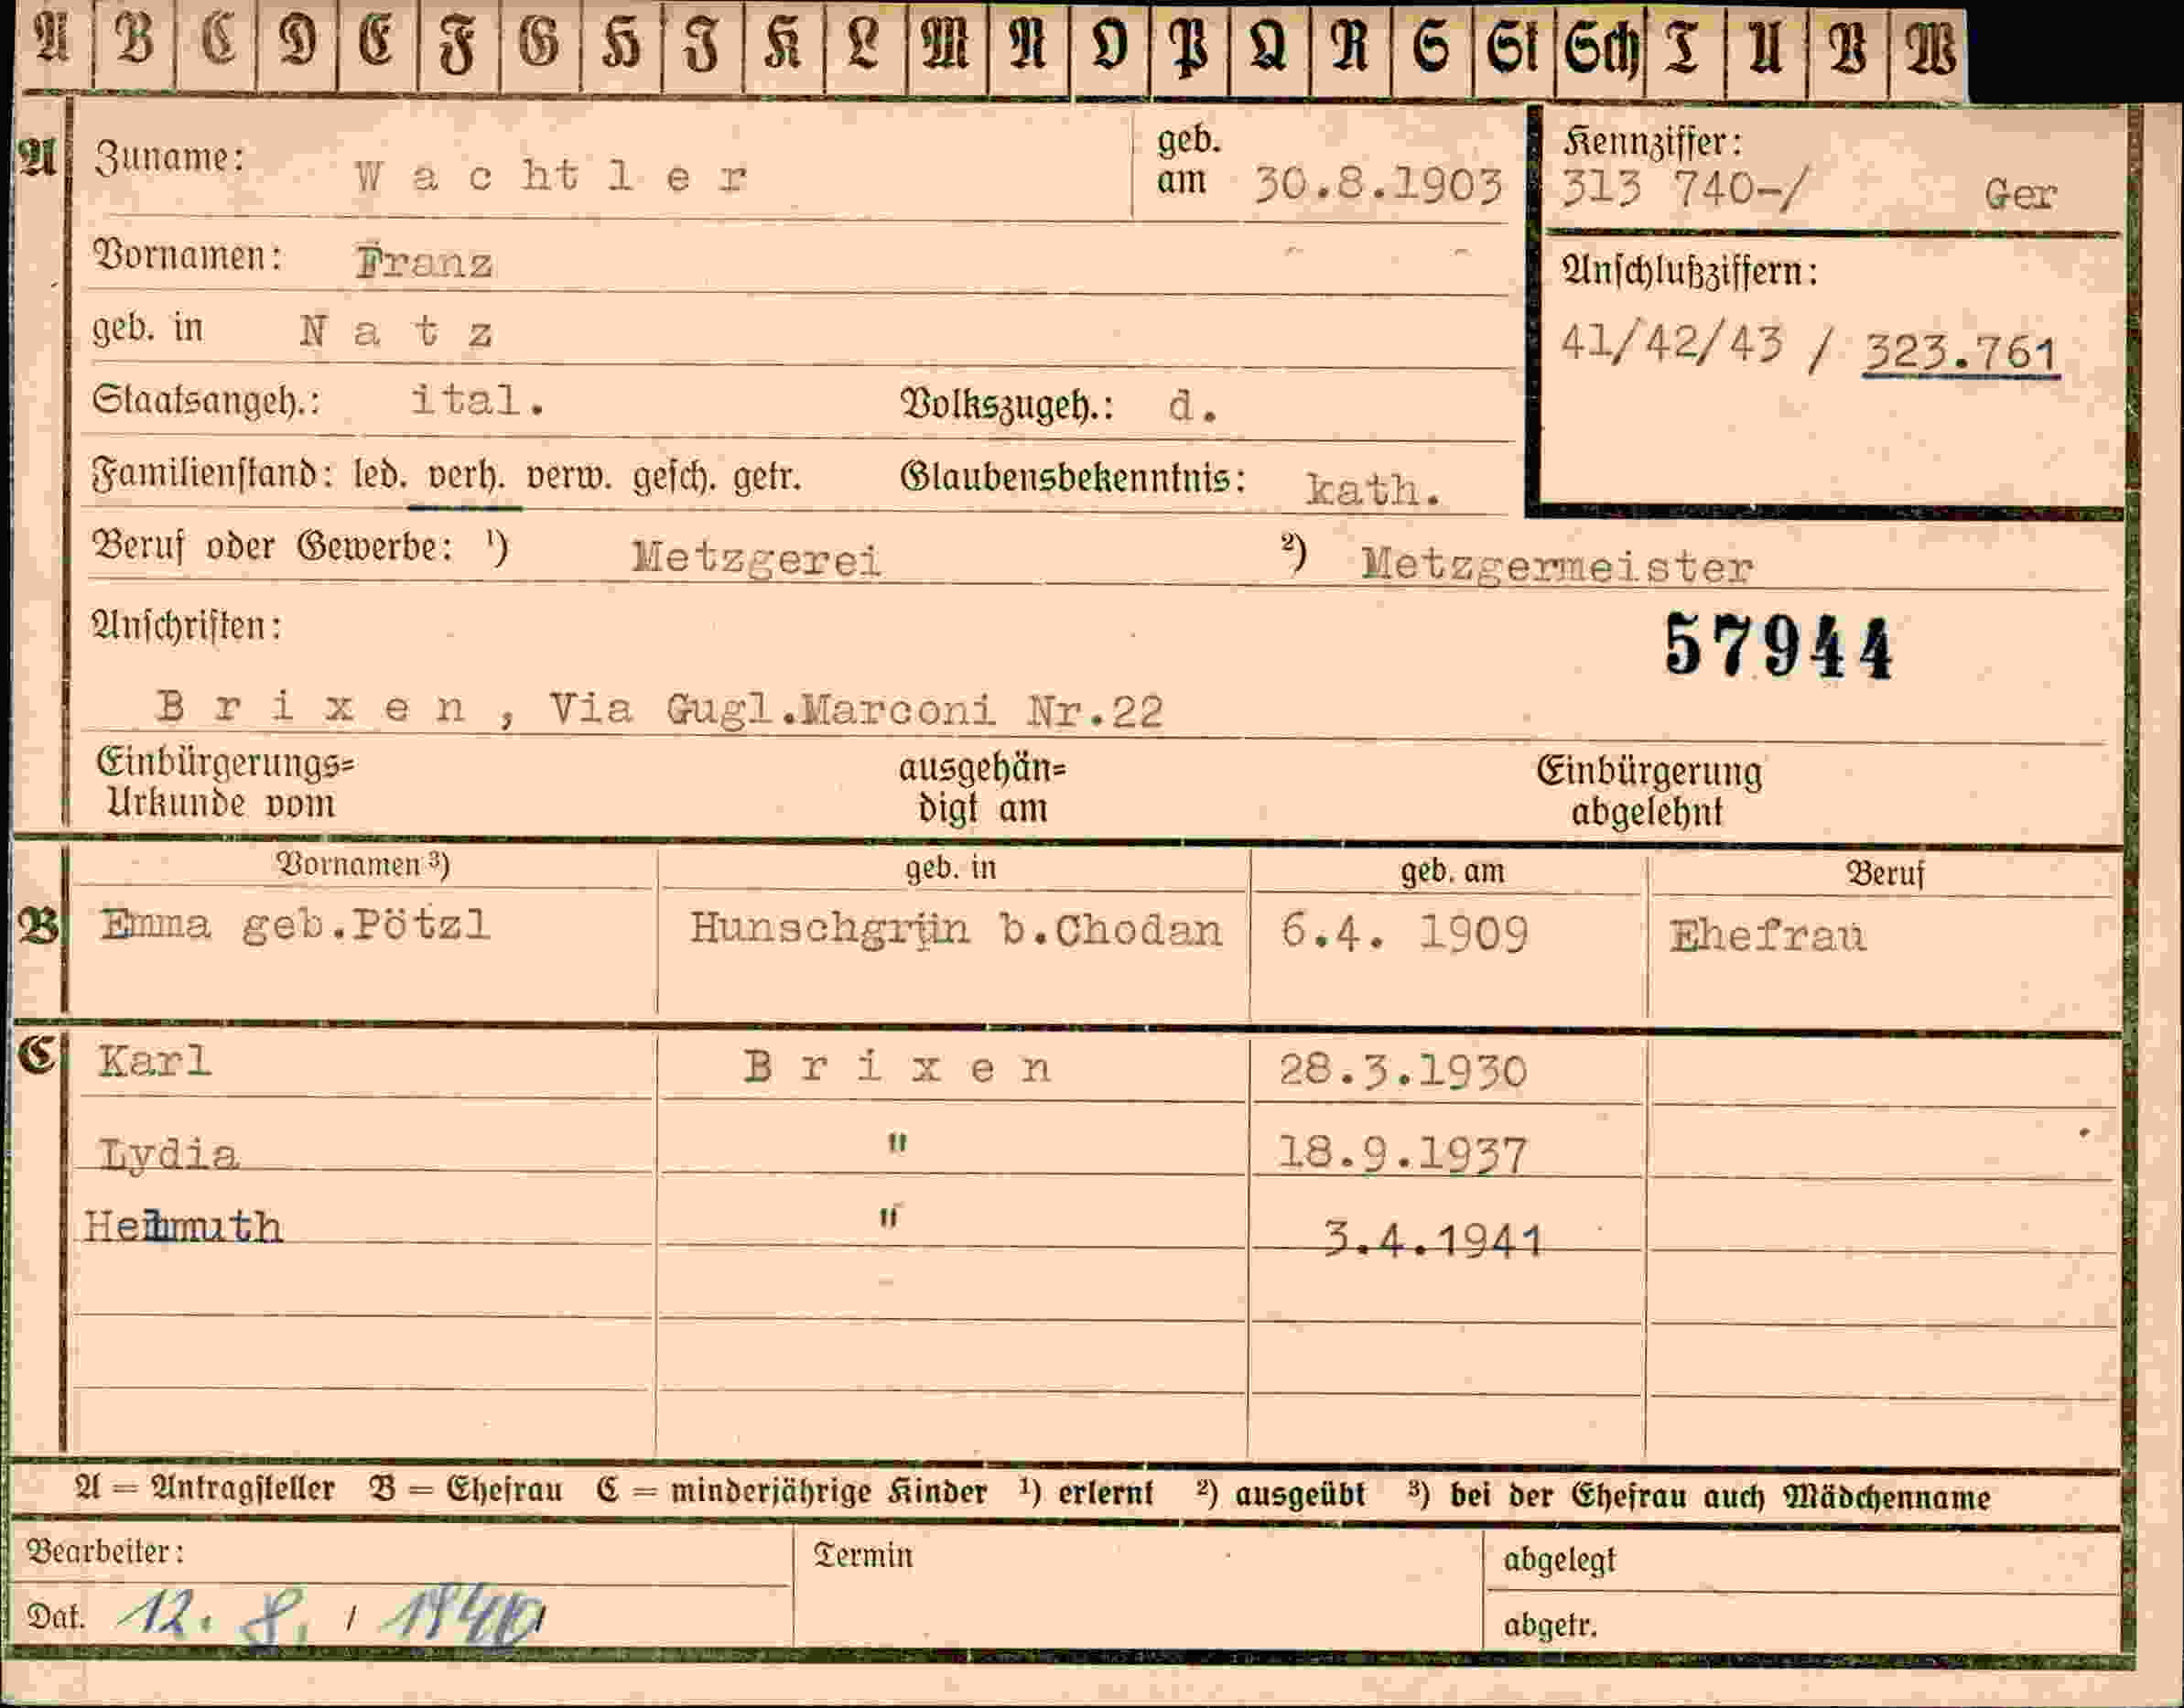 A B C D E F G H J K L M N O P Q R S St Sch T U V W
A Zuname: Wachtler geb. am 30.8.1903 Kennziffer: 313 740-/ Ger
Vornamen: Franz
Anschlußziffern:
geb. in Natz
41/42/43 / 323.761
Staatsangeh.: ital. Volkszugeh.: d.
Familienstand: led. verh. verw. gesch. getr. Glaubensbekenntnis: kath.
Beruf oder Gewerbe: ¹) Metzgerei ²) Metzgermeister
Anschriften:
57944
Brixen, Via Gugl.Marconi Nr.22
Einbürgerungs= ausgehän= Einbürgerung
Urkunde vom digt am abgelehnt
Vornamen ³) geb. in geb. am Beruf
B Emma geb.Pötzl Hunschgrün b.Chodan 6.4. 1909 Ehefrau
C Karl Brixen 28.3.1930
Lydia " 18.9.1937
" 3.4.1941
A = Antragsteller B = Ehefrau C = minderjährige Kinder ¹) erlernt ²) ausgeübt ³) bei der Ehefrau auch Mädchenname
Bearbeiter: Termin abgelegt
Dat. 12. 8. / abgetr.